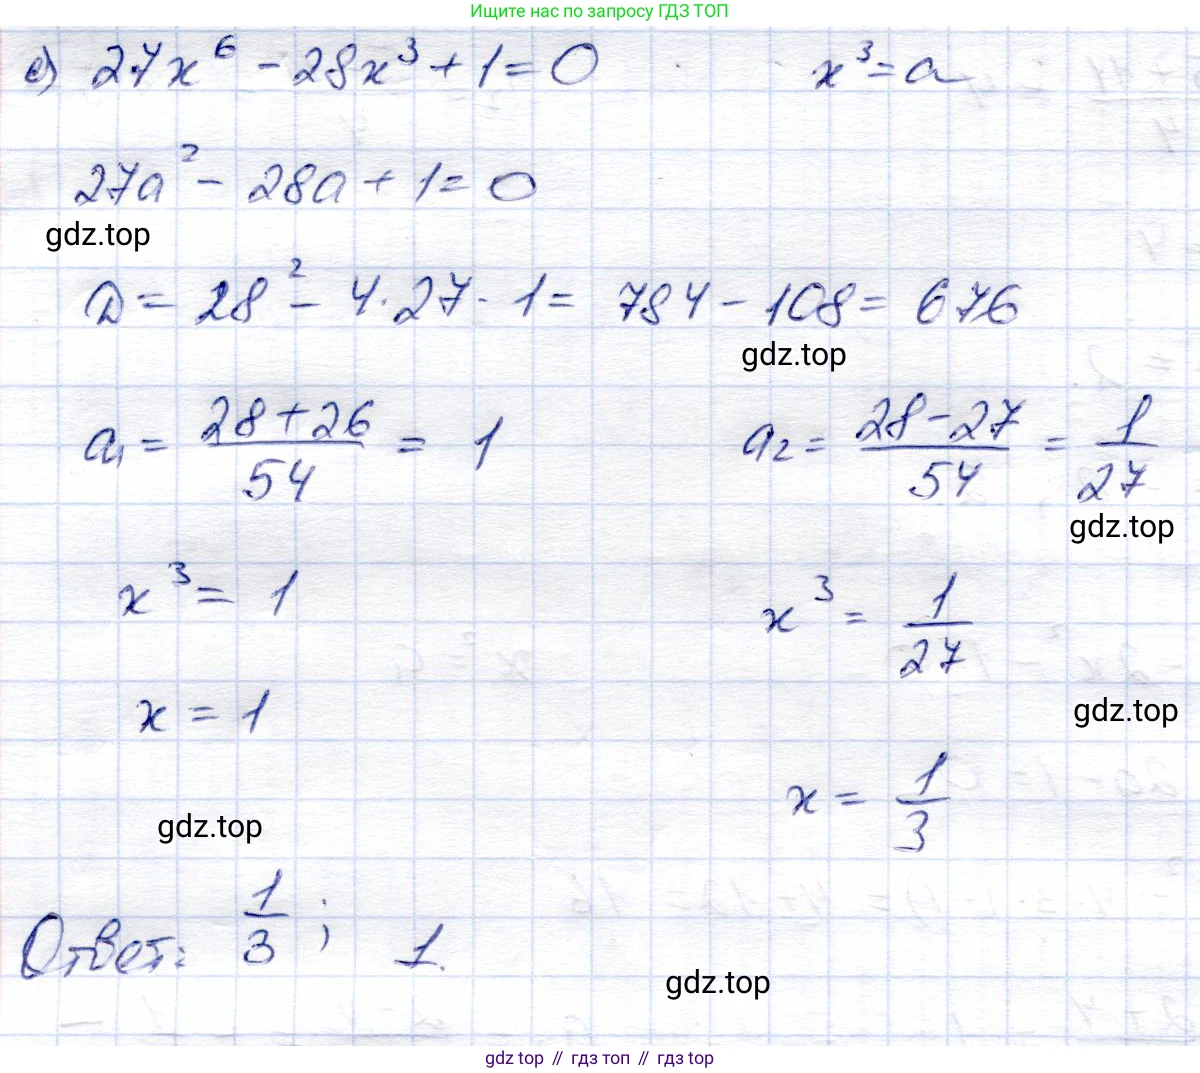 Ищите нас по запросу ГДЗ ТОП
е) 27x⁶ - 28x³ + 1 = 0 x³ = a
27a² - 28a + 1 = 0
gdz.top
D = 28² - 4·27·1 = 784 - 108 = 676
gdz.top
a₁ = (28+26)/54 = 1 a₂ = (28-27)/54 = 1/27
gdz.top
x³ = 1 x³ = 1/27
x = 1 gdz.top
x = 1/3
gdz.top
Ответ: 1/3; 1.
gdz.top
gdz top // гдз топ // gdz top